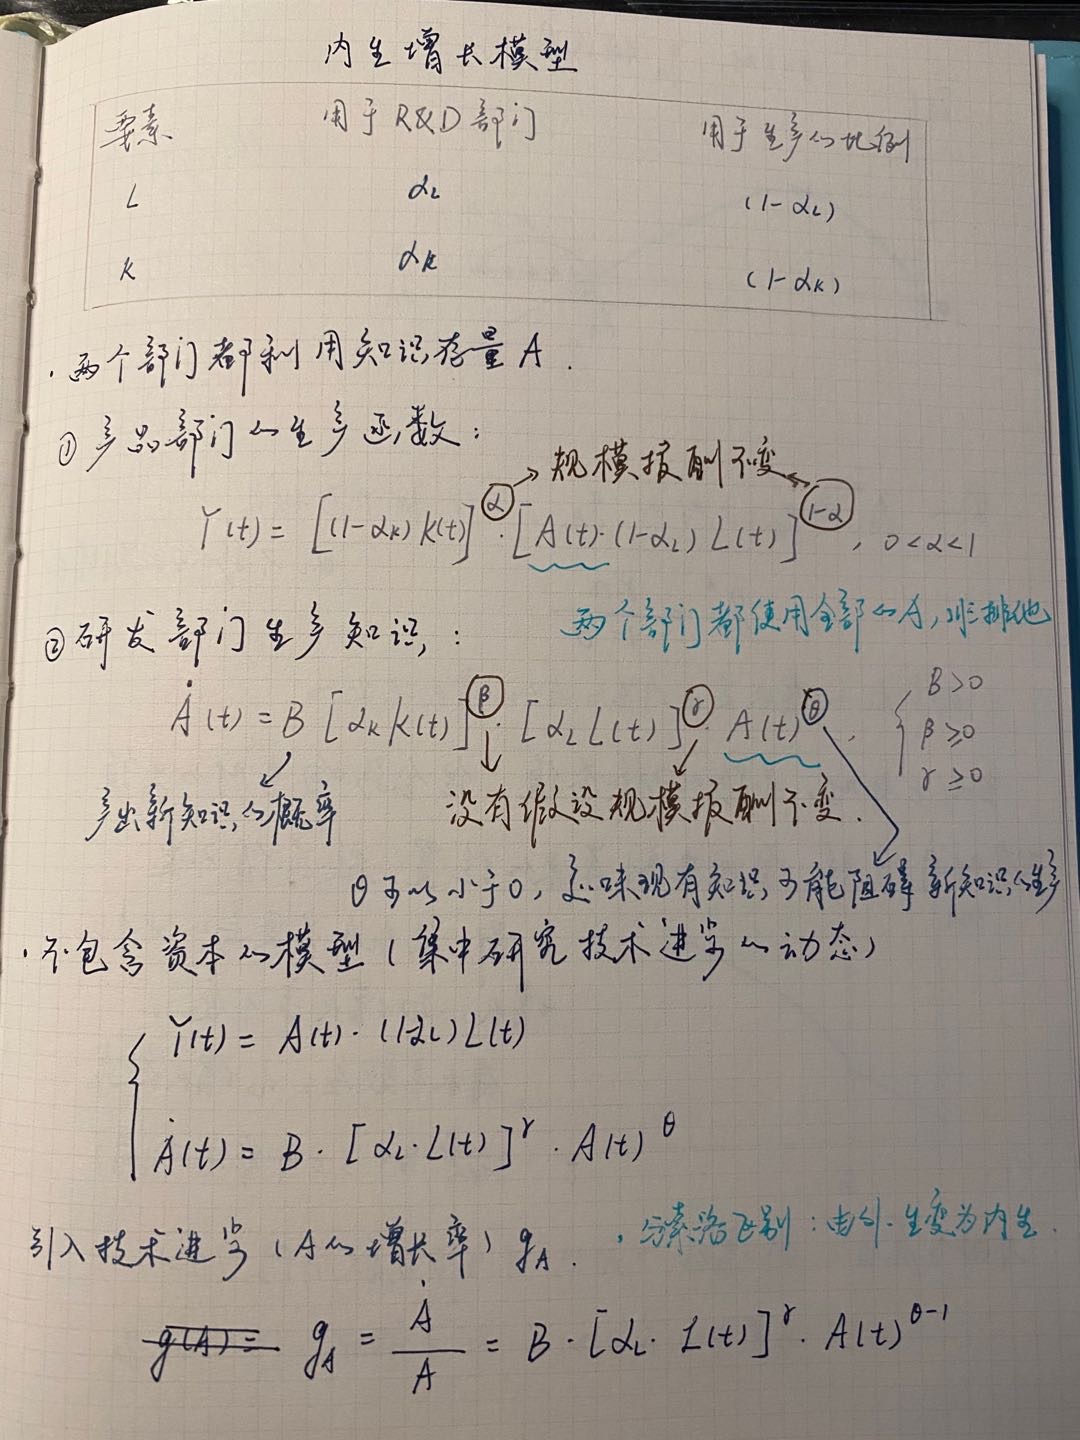 内生增长模型
要素 用于 R&D 部门 用于生产的比例
L αL (1-αL)
K αK (1-αK)
· 两个部门都利用知识存量 A.
① 产品部门的生产函数:
规模报酬不变
Y(t) = [(1-αK) K(t)]^α · [A(t)·(1-αL) L(t)]^1-α, 0<α<1
两个部门都使用全部的A,非排他
② 研发部门生产知识,:
Ȧ(t) = B [αK K(t)]^β · [αL L(t)]^γ · A(t)^θ.
B>0
β≥0
γ≥0
产出新知识的概率 没有假设规模报酬不变.
θ可以小于0,意味现有知识可能阻碍新知识的生产
· 不包含资本的模型(集中研究技术进步的动态)
Y(t) = A(t)·(1-αL) L(t)
Ȧ(t) = B · [αL·L(t)]^γ · A(t)^θ
· 与索洛区别:由外生变为内生.
引入技术进步(A的增长率) gA.
g(A)= gA = Ȧ/A = B · [αL· L(t)]^γ · A(t)^θ-1